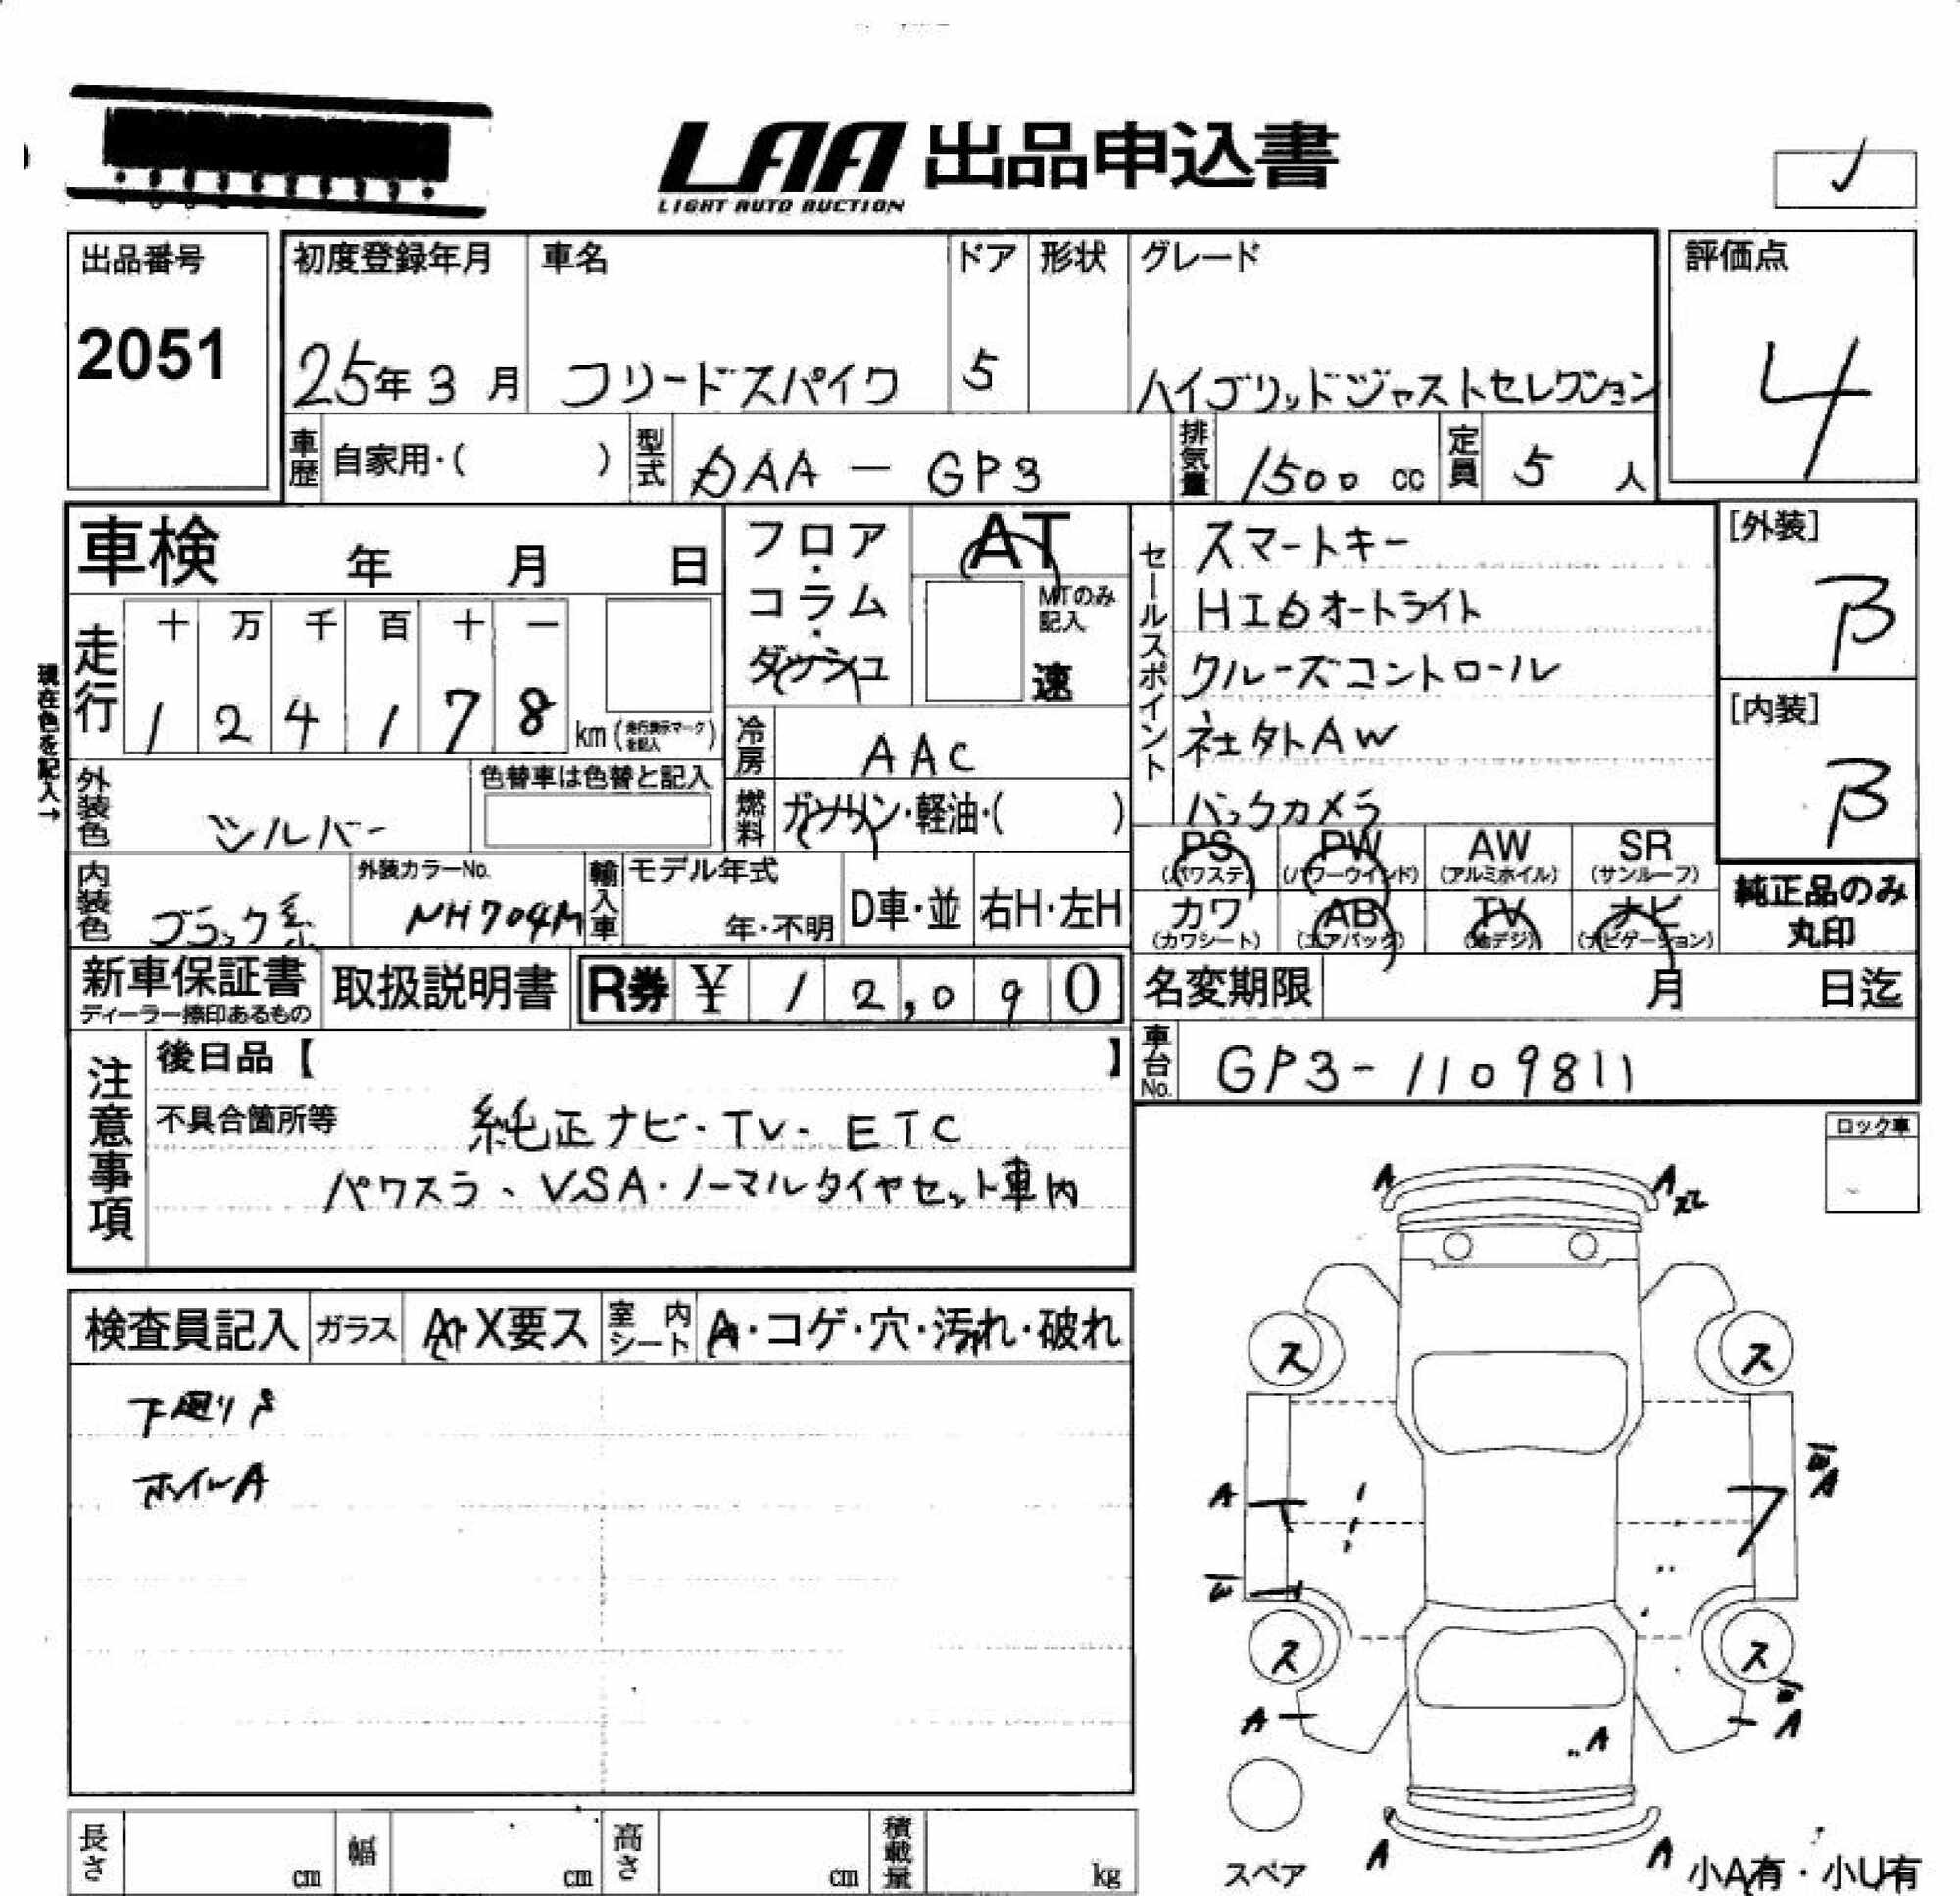 LAA 出品申込書
LIGHT AUTO AUCTION
出品番号
2051
初度登録年月
25年 3 月
車名
フリードスパイク
ドア
5
形状
グレード
ハイブリッドジャストセレクション
評価点
4
車歴
自家用・( )
型式
DAA - GP3
排気量
1500 cc
定員
5 人
車検 年 月 日
フロア・コラム・ダッシュ
AT
MTのみ記入
速
走行
十 万 千 百 十 一
1 2 4 1 7 8
km (走行表示マークを記入)
現在色を記入→
冷房
AAC
燃料
ガソリン・軽油・( )
外装色
シルバー
色替車は色替と記入
内装色
ブラック系
外装カラーNo.
NH704M
輸入車
モデル年式
年・不明
D車・並
右H・左H
セールスポイント
スマートキー
HIDオートライト
クルーズコントロール
社外AW
バックカメラ
[外装]
B
[内装]
B
PS
(パワステ)
PW
(パワーウインド)
AW
(アルミホイル)
SR
(サンルーフ)
カワ
(カワシート)
AB
(エアバック)
TV
(地デジ)
ナビ
(ナビゲーション)
純正品のみ
丸印
新車保証書
ディーラー捺印あるもの
取扱説明書
R券 ¥ 12,090
名変期限 月 日迄
車台No.
GP3-1109811
注意事項
後日品【 】
不具合箇所等
純正ナビ・TV・ETC
パワスラ、VSA・ノーマルタイヤセット車内
ロック車
検査員記入
ガラス
A・X要ス
室内シート
A・コゲ・穴・汚れ・破れ
下廻りS
ホイルA
A
A
ス
ス
A
A
ス
ス
A
A
A
A
A
スペア
小A有・小U有
長さ cm
幅 cm
高さ cm
積載量 kg